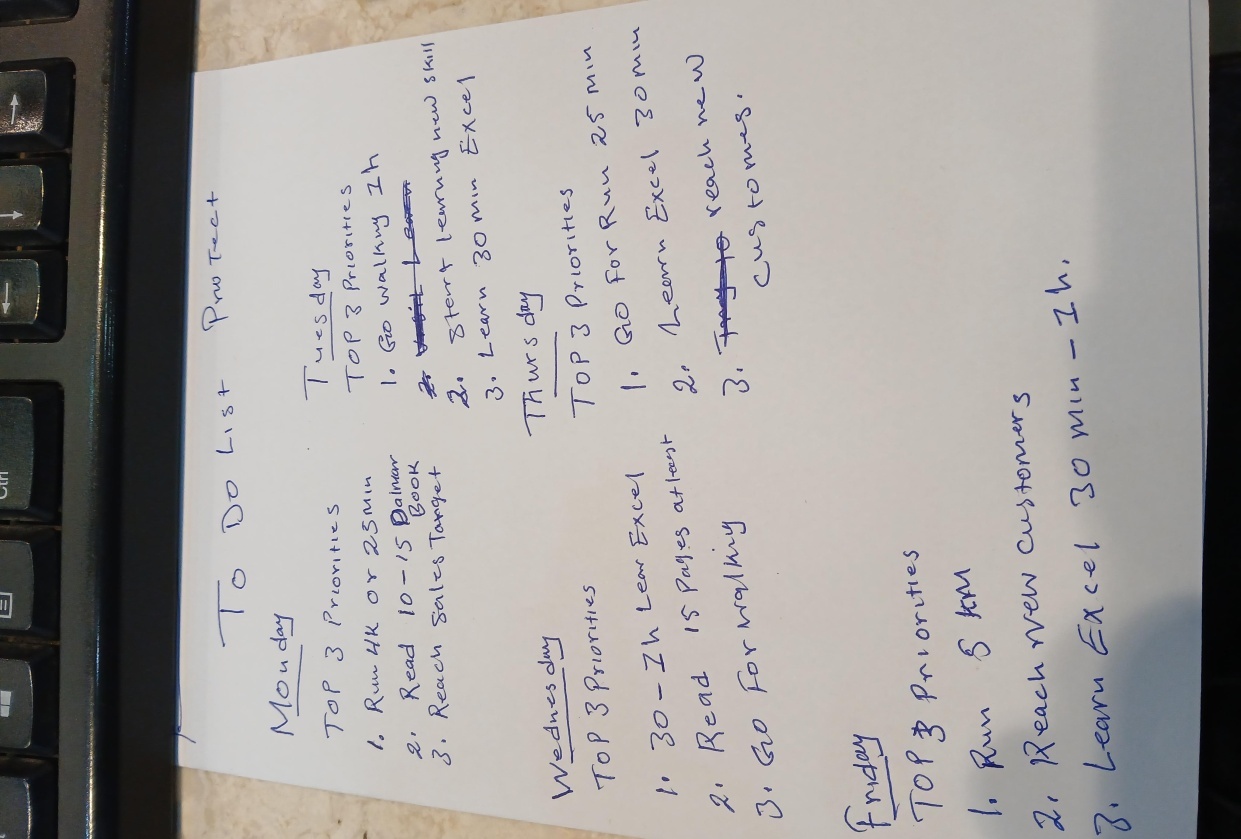 To Do List Protect
Monday
TOP 3 Priorities
1. Run 4K or 25 Min
2. Read 10-15
Book
3. Reach Sales Target
Tuesday
TOP 3 Priorities
1. Go walking 1h
2. Start learning new skill
3. Learn 30 min Excel
Wednesday
TOP 3 Priorities
1. 30-1h Lear Excel
2. Read 15 Pages atleast
3. Go For walking
Thursday
TOP 3 Priorities
1. Go For Run 25 min
2. Learn Excel 30 min
3. reach new
customes.
Friday
TOP 3 Priorities
1. Run 5 km
2. Reach new customers
3. Learn Excel 30 min - 1h.
Ctrl